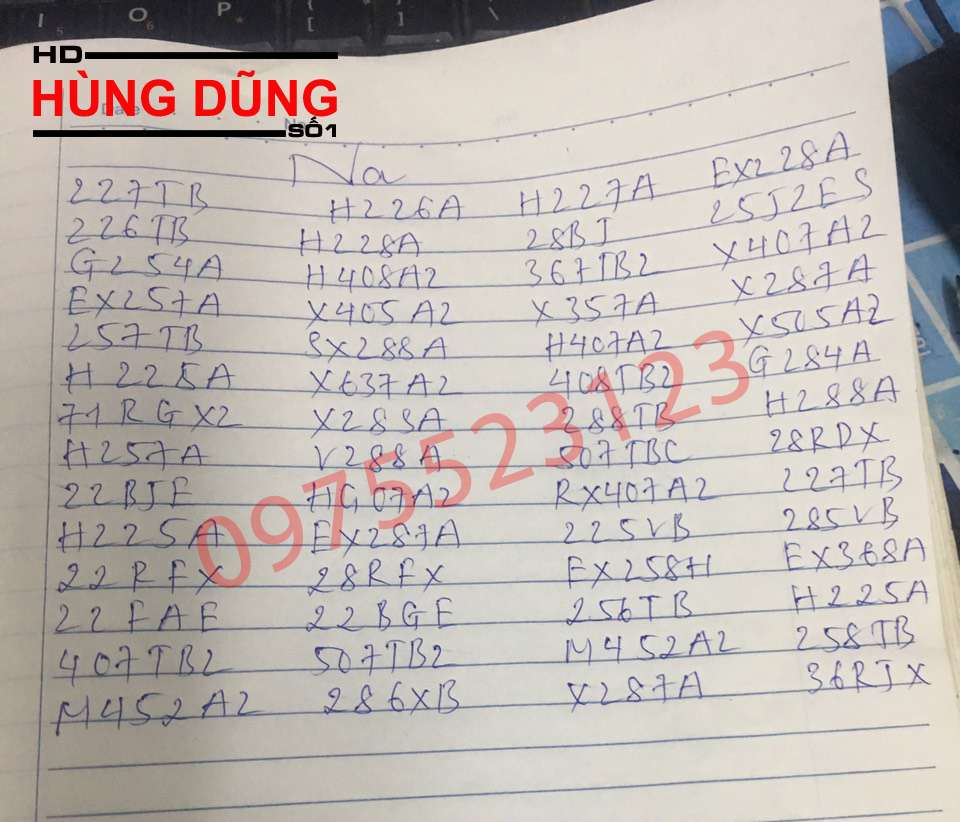 I O P [ ] \
HD
HÙNG DŨNG
SỐ1
Date
No
Na
227TB H226A H227A EX228A
226TB H228A 28BJ 25J2ES
G254A H408A2 367TB2 X407A2
EX257A X405A2 X357A X287A
257TB SX288A H407A2 X505A2
H225A X637A2 408TB2 G284A
71RGX2 X288A 288TB H288A
H257A V288A 507TBC 28RDX
22BJE HG07A2 RX407A2 227TB
H225A EX287A 225VB 285VB
22RFX 28RFX EX258H EX368A
22FAE 22BGE 256TB H225A
407TB2 507TB2 M452A2 258TB
M452A2 286XB X287A 36RJX
0975523123